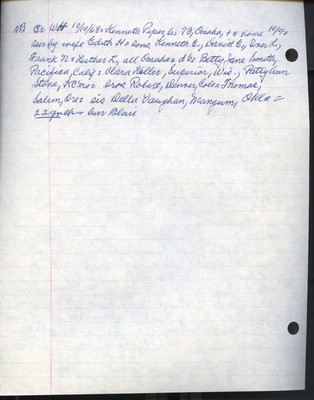 OWH 10/10/68 - Kenneth Piper, Sr 73, Omaha, + @ home 10/9 =
surv by wife Edith H = Sons, Kenneth E., David E., Dean L,
Frank N & Luther L, all Omaha = d Ds Betty Jane
Pacifica, Calif = Clara Keller, Superior, Wis., Betty Ann
Stone, KCMo = bros Robert, Denver, Colo = Thomas,
Salem, Ore = sis Della Vaughan, Mangum, Okla =
22 gch = bur Blair